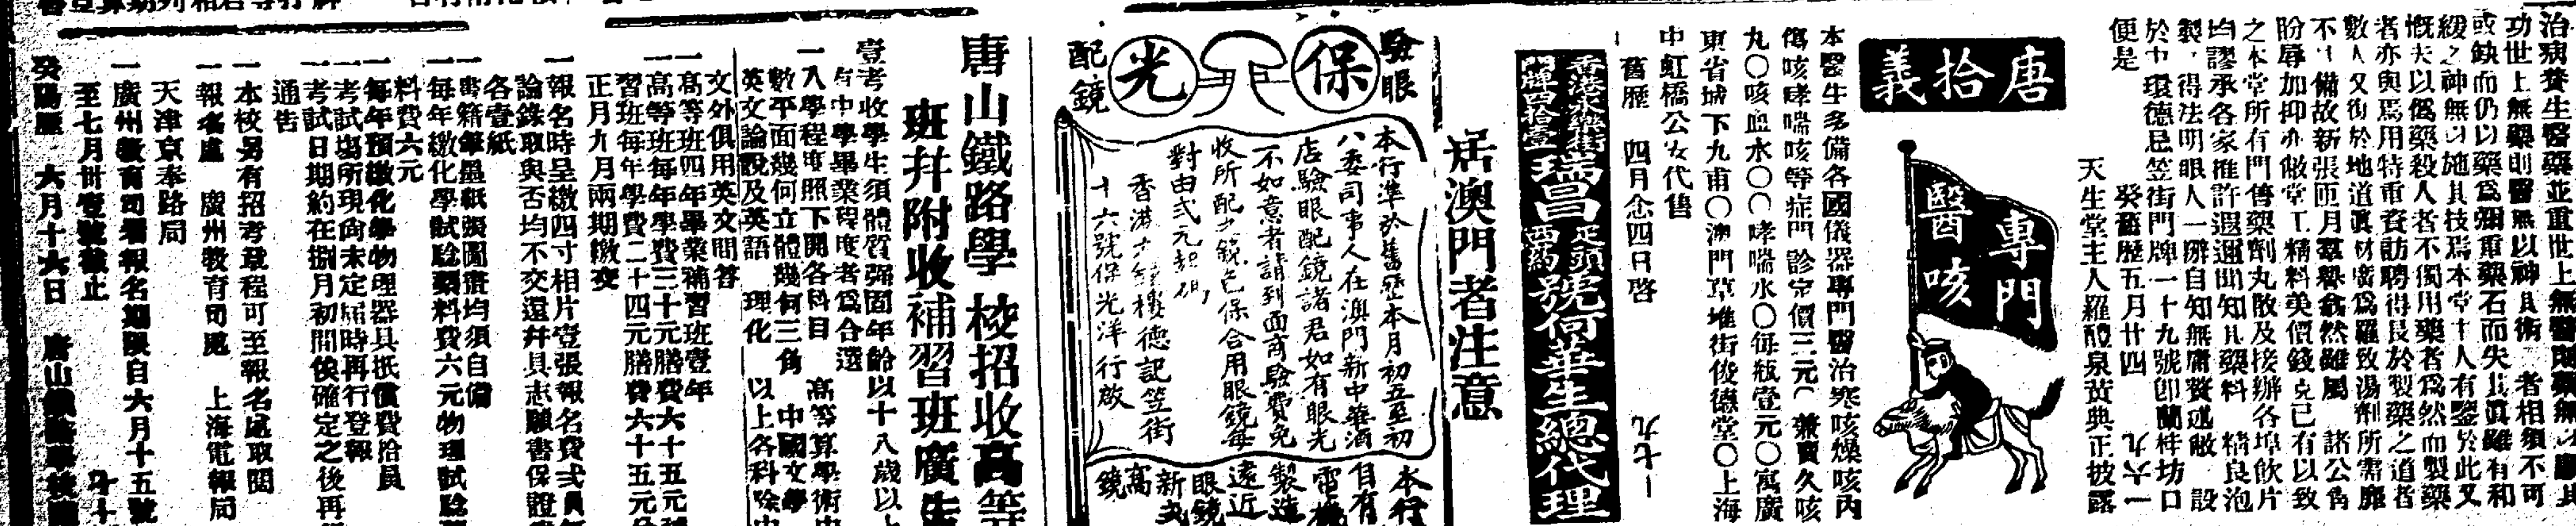 治病養生醫藥並重世上無醫
功世上無藥則醫無以神其術 者相須不可
或缺而仍以藥爲彌重藥石而失其眞雖有和
緩之神無以施其技焉本堂主人有鑒於此又
慨夫以僞藥殺人者不獨用藥者爲然而製藥
者亦與焉用特重資訪聘得良於製藥之道者
數人又復於地道眞材廣爲羅致湯劑所需靡
不 備故新張匝月羣譽翕然雖屬 諸公角
盼辱加抑亦敝堂工精料美價錢克已有以致
之本堂所有門售藥劑丸散及接辦各埠飲片
均謬承各家推許遐邇聞知其藥料 精良泡
製 得法明眼人一辦自知無庸贅述敝 設
於中環德忌笠街門牌一十九號卽蘭桂坊口
便是 癸舊歷五月廿四 九六一
天生堂主人羅醴泉黃典正披露
唐拾義
專門
醫咳
本醫生多備各國儀器專門醫治寒咳燥咳內
傷咳哮喘咳等症門診定價三元 兼賣久咳
丸〇咳血水〇〇哮喘水〇每瓶壹元〇寓廣
東省城下九甫〇澳門草堆街俊德堂〇上海
中虹橋公女代售
舊歷 四月念四日啓 九七一
瑞昌 號何華生總代理
居澳門者注意
驗眼
保
光
配鏡
本行準於舊歷本月初五至初
八委司事人在澳門新中華酒
店驗眼配鏡諸君如有眼光
不如意者請到面商驗費免
收所配之鏡包保合用眼鏡每
對由式元起碼
香港 樓德記笠街
十六號保光洋行啟
本行
自有
電機
製造
遠近
眼鏡
新式
高
鏡
唐山鐵路學校招收高等
班幷附收補習班廣告
壹考收學生須體質强固年齡以十八歲以上
有中學畢業程度者爲合選
一入學程度照下開各科目 高等算學術
數平面幾何立體幾何三角 中國文學
英文論說及英語 理化 以上各科除
文外俱用英文問答
一高等班四年畢業補習班壹年
一高等班每年學費三十元膳費六十五元
習班每年學費二十四元膳費六十五元
正月九月兩期繳交
一報名時呈繳四寸相片壹張報名費式員
論錄取與否均不交還幷具志願書保證
各壹紙
一書籍筆墨紙張圖畫均須自備
一每年繳化學試驗藥料費六元物理試驗
料費六元
一每年預繳化學物理器具抵償費拾員
一考試塲所現尙未定屆時再行登報
一考試日期約在捌月初間俟確定之後再
通告
一本校另有招考章程可至報名處取閱
一報名處 廣州教育司處 上海電報局
天津京奉路局
一廣州教育司署報名期限自六月十五號
至七月卅壹號截止
癸陽歷 六月十六日 唐山鐵路學校